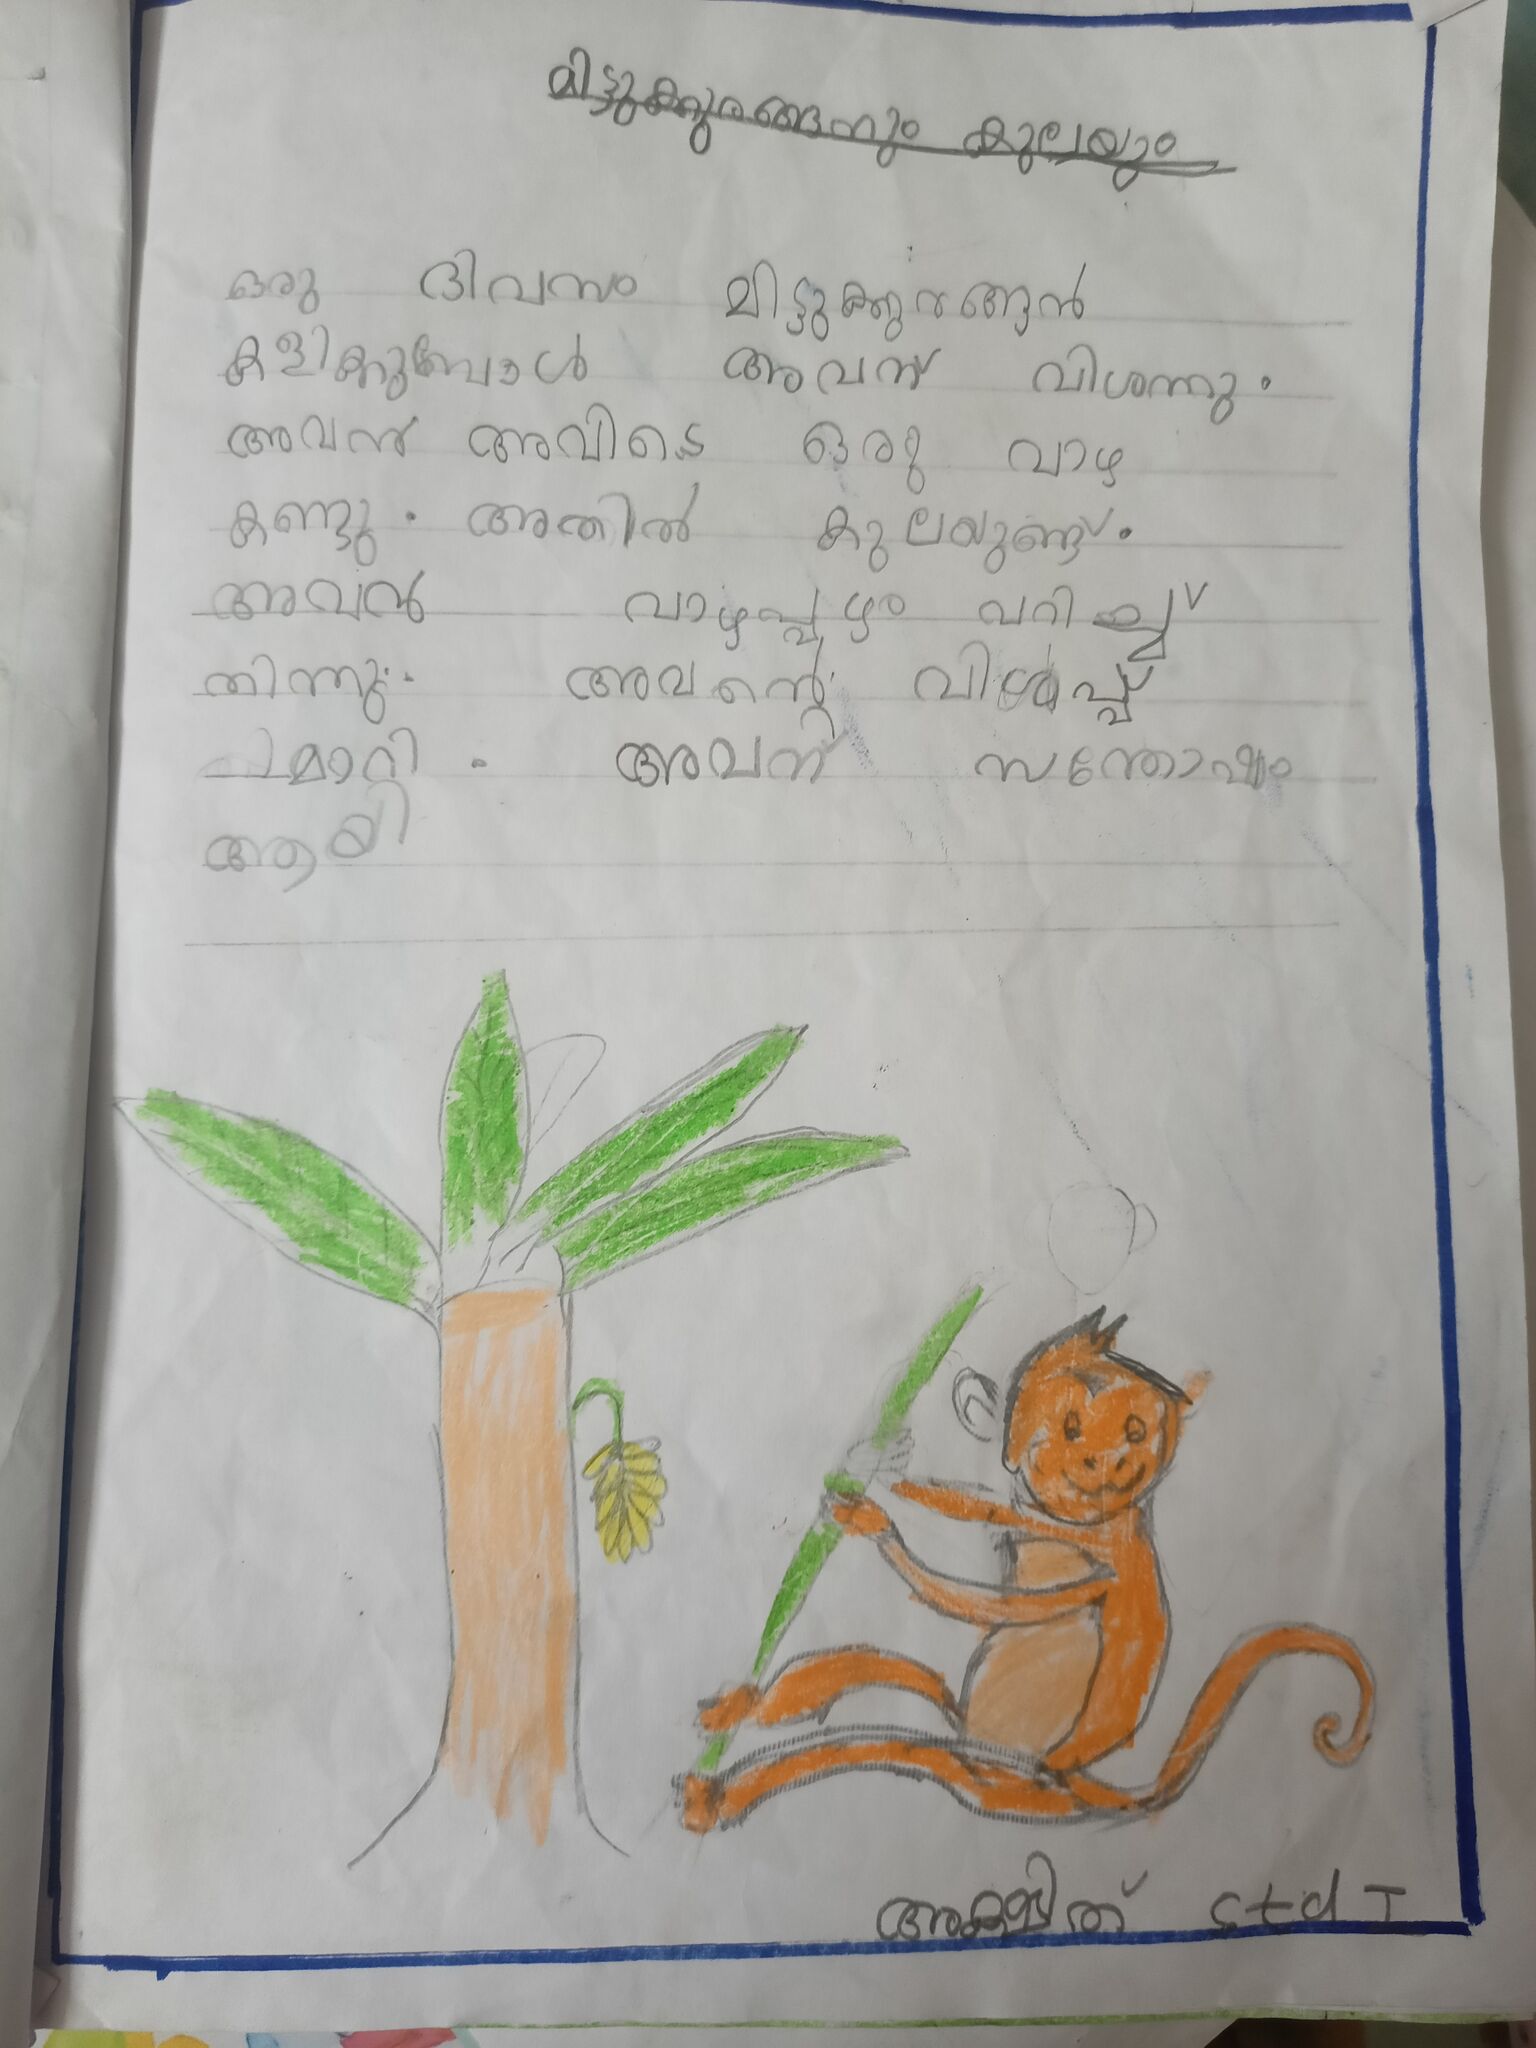 മിട്ടുക്കുരങ്ങനും കുലയും
ഒരു ദിവസം മിട്ടുക്കുരങ്ങൻ
കളിക്കുബോൾ അവന് വിശന്നു.
അവൻ അവിടെ ഒരു വാഴ
കണ്ടു. അതിൽ കുലയുണ്ട്.
അവൻ വാഴപ്പഴം പറിച്ച്
തിന്നു. അവന്റെ വിശപ്പ്
മാറി. അവന് സന്തോഷം
ആയി
std I